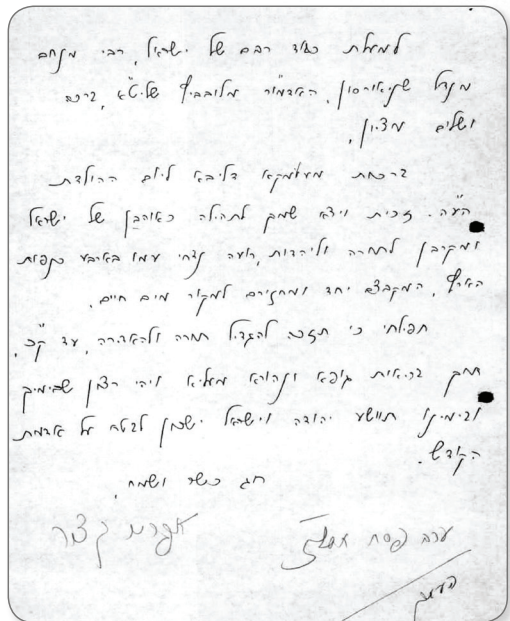 למעלת כבוד רבם של ישראל, רבי מנחם
מנדל שניאורסון, האדמו״ר מלובביץ שליט״א, ברכה
ושלום מציון,
ברכות מעומקא דליבא ליום ההולדת
הע״ה. זכית ויצא שמך לתהילה כאוהבן של ישראל
ומקרבן לתורה וליהדות, רועה נדחי עמו בארבע כנפות
הארץ, המקבצם יחד ומחזירם למקור מים חיים.
תפילתי כי תזכה להגדיל תורה ולהאדירה, עד ק״כ,
מתוך בריאות גופא ונהורא מעליא ויהי רצון שבימיך
ובימינו תיוושע יהודה וישראל ישכון לבטח על אדמת
הקודש.
חג כשר ושמח,
אפרים קצר
ערב פסח